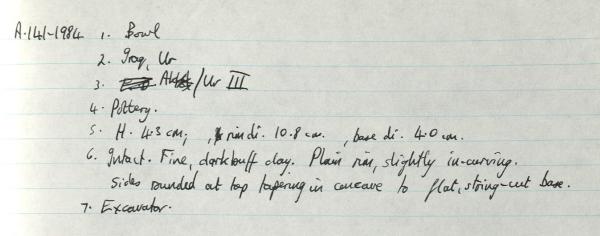 A.141-1984 1. Bowl
2. Iraq, Ur
3. Akk/Ur III
4. Pottery.
5. H. 4.3 cm; , rim di. 10.8 cm. , base di. 4.0 cm.
6. Intact. Fine, dark buff clay. Plain rim, slightly in-curving.
Sides rounded at top tapering in concave to flat, string-cut base.
7. Excavator.